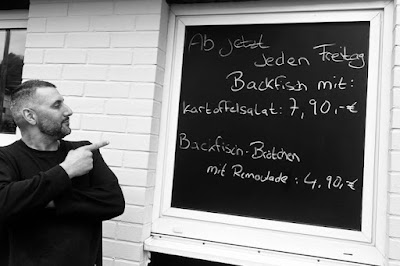 Ab jetzt
jeden Freitag
Backfisch mit:
Kartoffelsalat: 7,90,-€
Backfisch-Brötchen
mit Remoulade: 4,90,-€